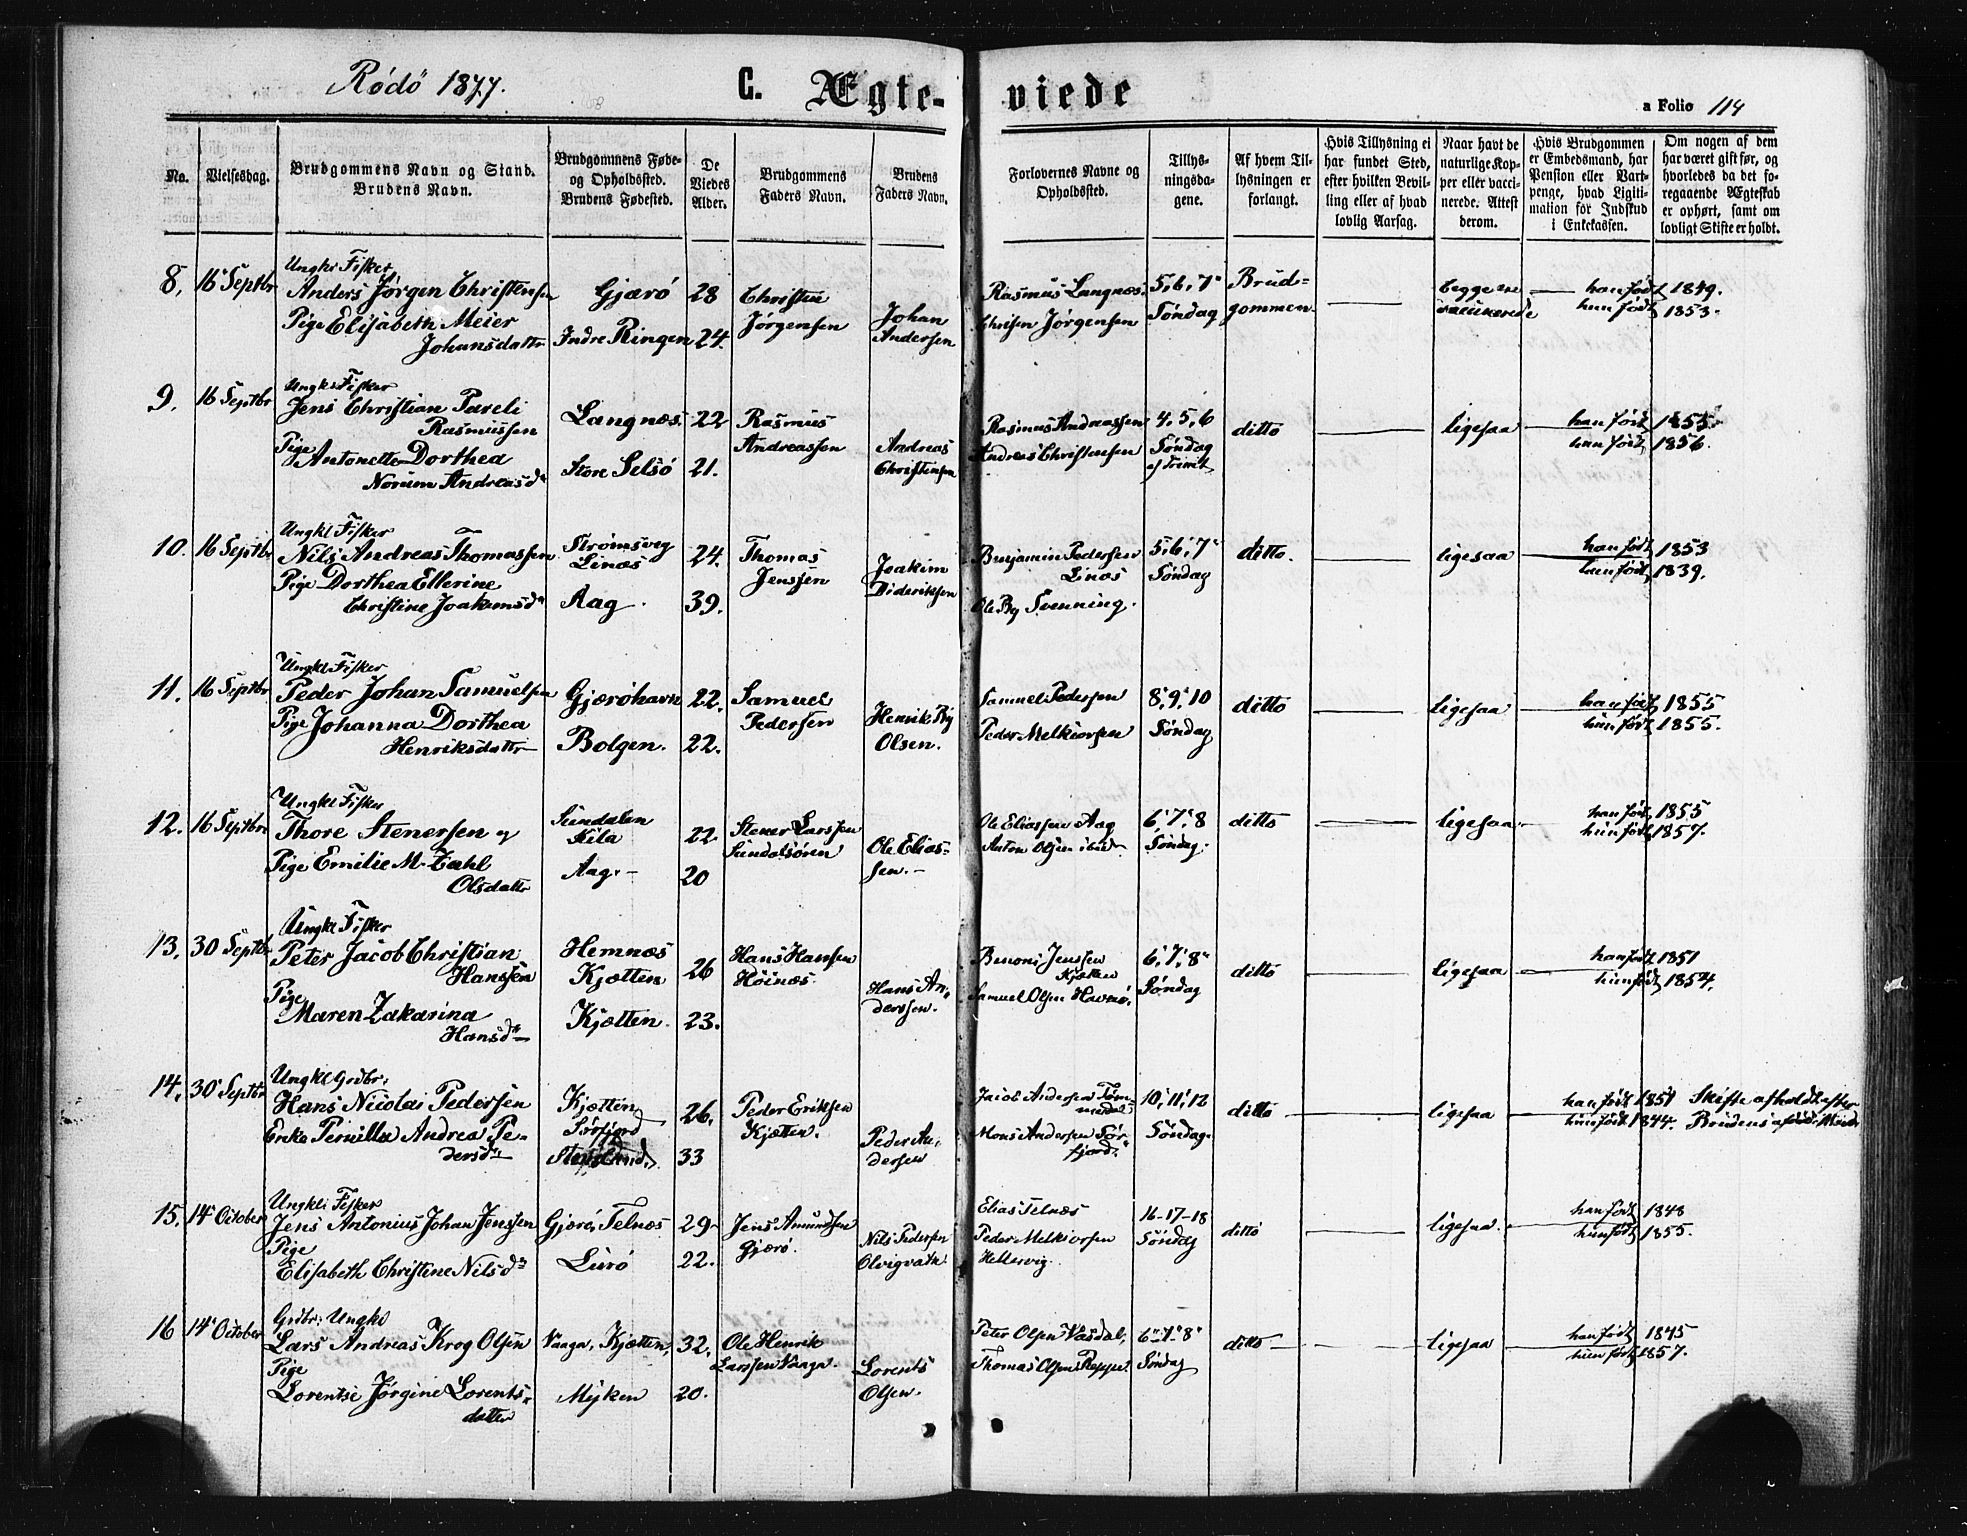 Rødø 1877.
C. Ægte-
viede
a Folio 114
No.
Vielsesdag.
Brudgommens Navn og Stand.
Brudens Navn.
Brudgommens Føde-
og Opholdssted.
Brudens Fødested.
De
Viedes
Alder.
Brudgommens
Faders Navn.
Brudens
Faders Navn.
Forlovernes Navne og
Opholdssted.
Tillys-
ningsda-
gene.
Af hvem Til-
lysningen er
forlangt.
Hvis Tillysning ei
har fundet Sted,
efter hvilken Bevil-
ling eller af hvad
lovlig Aarsag.
Naar havt de
naturlige Kop-
per eller vacci-
nerede. Attest
derom.
Hvis Brudgommen
er Embedsmand, har
Pension eller Vart-
penge, hvad Ligiti-
mation for Indskud
i Enkekassen.
Om nogen af dem
har været gift før, og
hvorledes da det fo-
regaaende Ægteskab
er ophørt, samt om
lovligt Skifte er holdt.
8, 16 Septbr
Ungk: Fisker
Anders Jørgen Christensen
Pige Elisabeth Meier
Johansdattr
Gjærø
Indre Ringen
28
24.
Christen
Jørgensen
Johan
Andersen
Rasmus Langnæs.
Christen Jørgensen
5, 6, 7'
Søndag
Brud=
gommen
begge ere
vaccinerede
han født 1849.
hun født 1853.
9. 16 Septbr
Ungk: Fisker
Jens Christian Pareli
Rasmussen
Pige
Antonette Dorthea
Norum Andreasd
Langnæs.
Store Selsø
22
21.
Rasmus
Andreassen
Andreas
Christensen
Rasmus Andreassen
Andreas Christensen
4, 5, 6
Søndag
ef Trinit
ditto
ligesaa
han født 1855
hun født 1856.
10. 16 Septbr
Ungkl Fisker
Nils Andreas Thomassen
Pige Dorthea Ellerine
Christine Joakimsd
Strømsveg
Linæs
Aag.
24.
39.
Thomas
Jenssen
Joakim
Dideriksen
Benjamin Pedersen
Linæs
Ole By Svenning.
5, 6, 7'
Søndag
ditto.
ligesaa
han født 1853
hun født 1839.
11. 16 Septbr
Ungkl Fisker
Peder Johan Samuelsen
Pige Johanna Dorthea
Henriksdattr
Gjærøhavn
Bolgen.
22.
22.
Samuel
Pedersen
Henrik By
Olsen.
Samuel Pedersen
Peder Melkiorsen
8, 9, 10
Søndag
ditto
ligesaa
han født 1855
hun født 1855.
12. 16 Septbr
Ungkl Fisker
Thore Stenersen
Pige Emilie M. Zahl
Olsdattr
Sundalen
Kila
Aag.
22
20
Stener Larssen
Sundalsøren
Ole Elias-
sen.
Ole Eliassen Aag
Anton Olsen ibid
6, 7, 8
Søndag.
ditto
ligesaa
han født 1855
hun født 1857.
13, 30 Septbr
Ungkl Fisker
Peter Jacob Christian
Hanssen
Pige
Maren Zakarina
Hansd
Hemnæs
Kjætten
Kjætten.
26
23.
Hans Hanssen
Høinæs.
Hans An-
derssen.
Benoni Jenssen
Kjætten
Samuel Olsen Havnø,
6, 7, 8
Søndag
ditto
ligesaa
han født 1851
hun født 1854.
14, 30 Septbr
Ungkl Grdbr:
Hans Nicolai Pedersen
Enke Pernilla Andrea Pe-
dersd
Kjætten
Sørfjord
26.
33
Peder Eriksen
Kjætten.
Peder An-
dersen
Jacob Andersen
Mons Andersen Sør-
fjord.
10, 11, 12
Søndag.
ditto
ligesaa
han født 1851
hun født 1844.
Skifte afholdt efter
Brudens afdøde Mand
15, 14 October
Ungk: Fisker
Jens Antonius Johan Jenssen
Pige
Elisabeth Christine Nilsd
Gjærø, Telnæs
Lurø
29
22.
Jens Amundsen
Gjærø.
Nils Pedersen
Elias Telnæs
Peder Melkiorsen
Hellervig.
16-17-18
Søndag
ditto
ligesaa.
han født 1848
hun født 1855.
16 14 October
Grdbr: Ungkl
Lars Andreas Krog Olsen
Pige
Lorentse Jørgine Lorents-
datter
Vaaga, Kjætten,
Myken
32,
20.
Ole Henrik
Larssen Vaaga.
Lorents
Olsen.
Peter Olsen Vasdal,
Thomas Olsen Reppe
6-7-8
Søndag
ditto
ligesaa
han født 1845
hun født 1857.